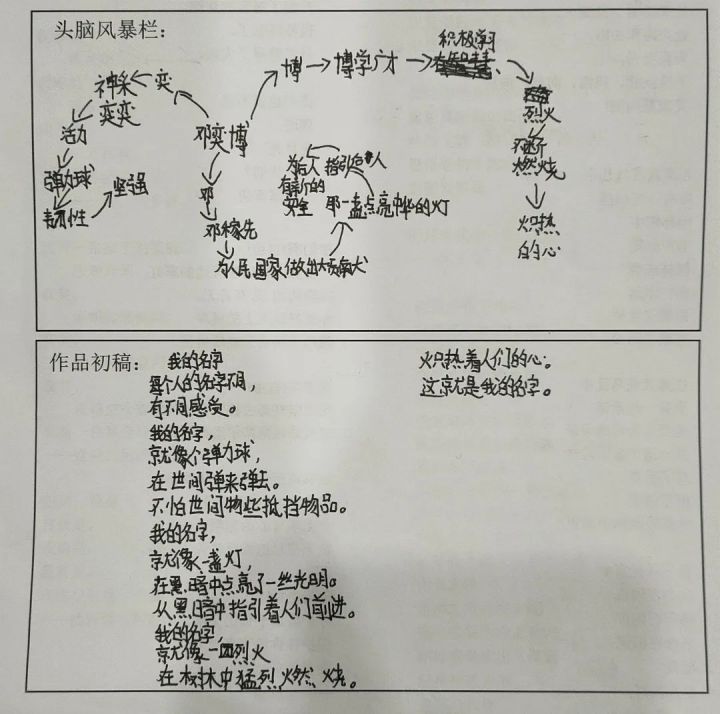 头脑风暴栏：
积极学习
博→博学广才→
神采
奕奕
←奕
烈火
活力
邓奕博
不断
燃烧
弹力球
坚强
为后人 指引后人
有新的
安全 那一盏点亮中华的灯
韧性
邓
炽热
的心
邓稼先
为人民国家做出大贡献
作品初稿：
我的名字
每个人的名字不同，
有不同感受。
我的名字，
就像个弹力球，
在世间弹来弹去。
不怕世间物些抵挡物品。
我的名字，
就像一盏灯，
在黑暗中点亮了一丝光明。
从黑暗中指引着人们前进。
我的名字，
就像一团烈火
在树林中猛烈燃烧。
炽热着人们的心。
这就是我的名字。